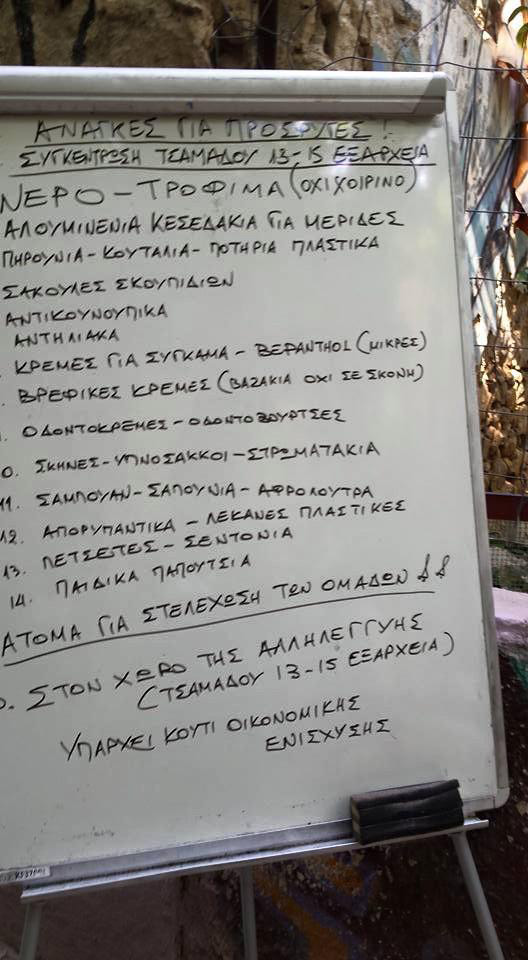 ΑΝΑΓΚΕΣ ΓΙΑ ΠΡΟΣΦΥΓΕΣ !
ΣΥΓΚΕΝΤΡΩΣΗ ΤΣΑΜΑΔΟΥ 13-15 ΕΞΑΡΧΕΙΑ
ΝΕΡΟ - ΤΡΟΦΙΜΑ (ΟΧΙ ΧΟΙΡΙΝΟ)
ΑΛΟΥΜΙΝΕΝΙΑ ΚΕΣΕΔΑΚΙΑ ΓΙΑ ΜΕΡΙΔΕΣ
ΠΗΡΟΥΝΙΑ - ΚΟΥΤΑΛΙΑ - ΠΟΤΗΡΙΑ ΠΛΑΣΤΙΚΑ
ΣΑΚΟΥΛΕΣ ΣΚΟΥΠΙΔΙΩΝ
ΑΝΤΙΚΟΥΝΟΥΠΙΚΑ
ΑΝΤΗΛΙΑΚΑ
ΚΡΕΜΕΣ ΓΙΑ ΣΥΓΚΑΜΑ - BEPANTHOL (ΜΙΚΡΕΣ)
ΒΡΕΦΙΚΕΣ ΚΡΕΜΕΣ (ΒΑΖΑΚΙΑ ΟΧΙ ΣΕ ΣΚΟΝΗ)
ΟΔΟΝΤΟΚΡΕΜΕΣ - ΟΔΟΝΤΟΒΟΥΡΤΣΕΣ
0. ΣΚΗΝΕΣ - ΥΠΝΟΣΑΚΚΟΙ - ΣΤΡΩΜΑΤΑΚΙΑ
11. ΣΑΜΠΟΥΑΝ - ΣΑΠΟΥΝΙΑ - ΑΦΡΟΛΟΥΤΡΑ
12. ΑΠΟΡΥΠΑΝΤΙΚΑ - ΛΕΚΑΝΕΣ ΠΛΑΣΤΙΚΕΣ
13. ΠΕΤΣΕΤΕΣ - ΣΕΝΤΟΝΙΑ
14. ΠΑΙΔΙΚΑ ΠΑΠΟΥΤΣΙΑ
ΑΤΟΜΑ ΓΙΑ ΣΤΕΛΕΧΩΣΗ ΤΩΝ ΟΜΑΔΩΝ
ΣΤΟΝ ΧΩΡΟ ΤΗΣ ΑΛΛΗΛΕΓΓΥΗΣ
(ΤΣΑΜΑΔΟΥ 13-15 ΕΞΑΡΧΕΙΑ)
ΥΠΑΡΧΕΙ ΚΟΥΤΙ ΟΙΚΟΝΟΜΙΚΗΣ
ΕΝΙΣΧΥΣΗΣ